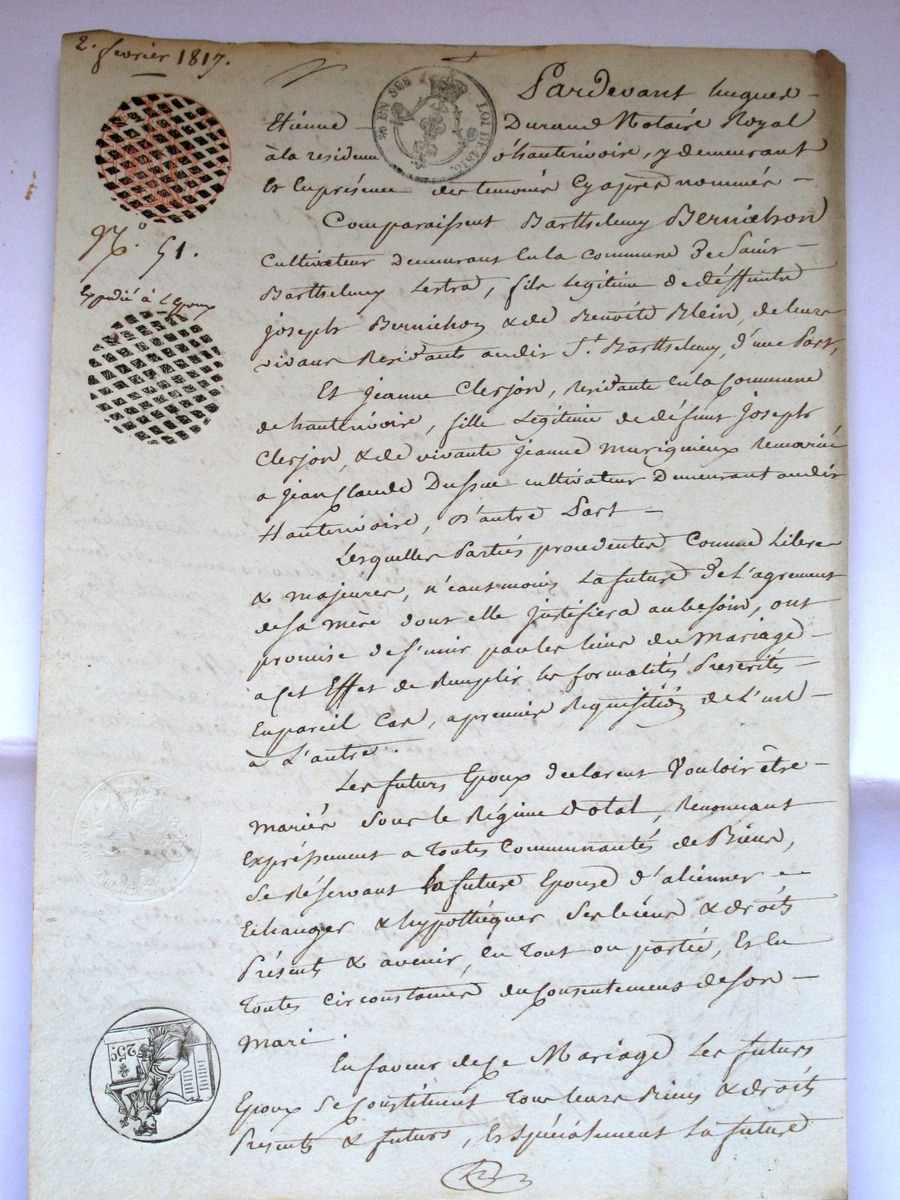 2. fevrier 1817.
N.° 51.
Expedié à L'Epoux
% EN SUS LOI DE 1816
25C
Pardevant hugues
Etienne Durand Notaire Royal
à la residence d'hauterivoire, y demeurant
Et En présence des temoins Cy après nommés
Comparaissent Barthelemy Bernichon
Cultivateur demeurant En la commune De Saint
Barthelemy Lestra, fils Legitime de déffunts
joseph Bernichon & de Benoite Blein, de leurs
vivans Residants audit St. Barthelemy, d'une Part,
Et jeanne Clerjon, residante En la Commune
de hauterivoire, fille Légitime de défunt joseph
Clerjon, & de vivante jeanne Remariée
a jean Claude cultivateur Demeurant audit
Hauterivoire, D'autre Part
Lesquelles Parties procedentes Comme Libres
& majeures, n'eanmoins La future De L'agrement
de sa mère dont elle justifiera au besoin, ont
promise de s'unir par les liens du Mariage
a Cet Effet de Remplir les formalités Prescrites
En pareil Cas, a premiere Requisition de L'un
à L'autre.
Les futurs Epoux declarent Vouloir être
mariés sous le Régime dotal, Renonçant
Expréssement a toutes Communautés de Biens,
Se Réservant la future Epouse d'alienner
Echanger & hypothéquer ses biens & droits
Présents & avenir, En tout ou partie, Et En
toutes circonstances du Consentement de son
mari.
En faveur de Ce Mariage Les futurs
Epoux Se Constituent Tous leurs Biens & droits
Presents & futurs, Et spécialement La future